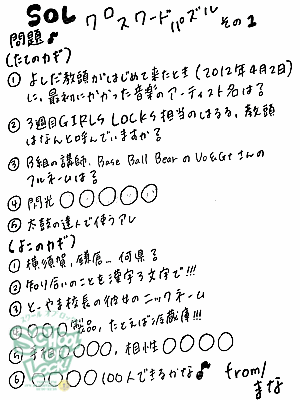 SOL クロスワードパズル その1
問題♪
(たてのカギ)
① よしだ教頭がはじめて来たとき(2012年4月2日)
に、最初にかかった音楽のアーティスト名は?
② 3週目GIRLS LOCKS担当のはるる、教頭
はなんと呼んでいますか?
③ B組の講師、Base Ball BearのVo&Gtさんの
フルネームは?
④ 閃光○○○○○
⑤ 太鼓の達人で使うアレ
(よこのカギ)
① 横須賀、鎌倉… 何県?
② 知り合いのことを漢字3文字で!!!
③ とーやま校長の彼女のニックネーム
④ ○○○製品。たとえば冷蔵庫!!!
⑤ 手相○○○○、相性○○○○
⑥ ○○○○100人できるかな♪
from/
まな